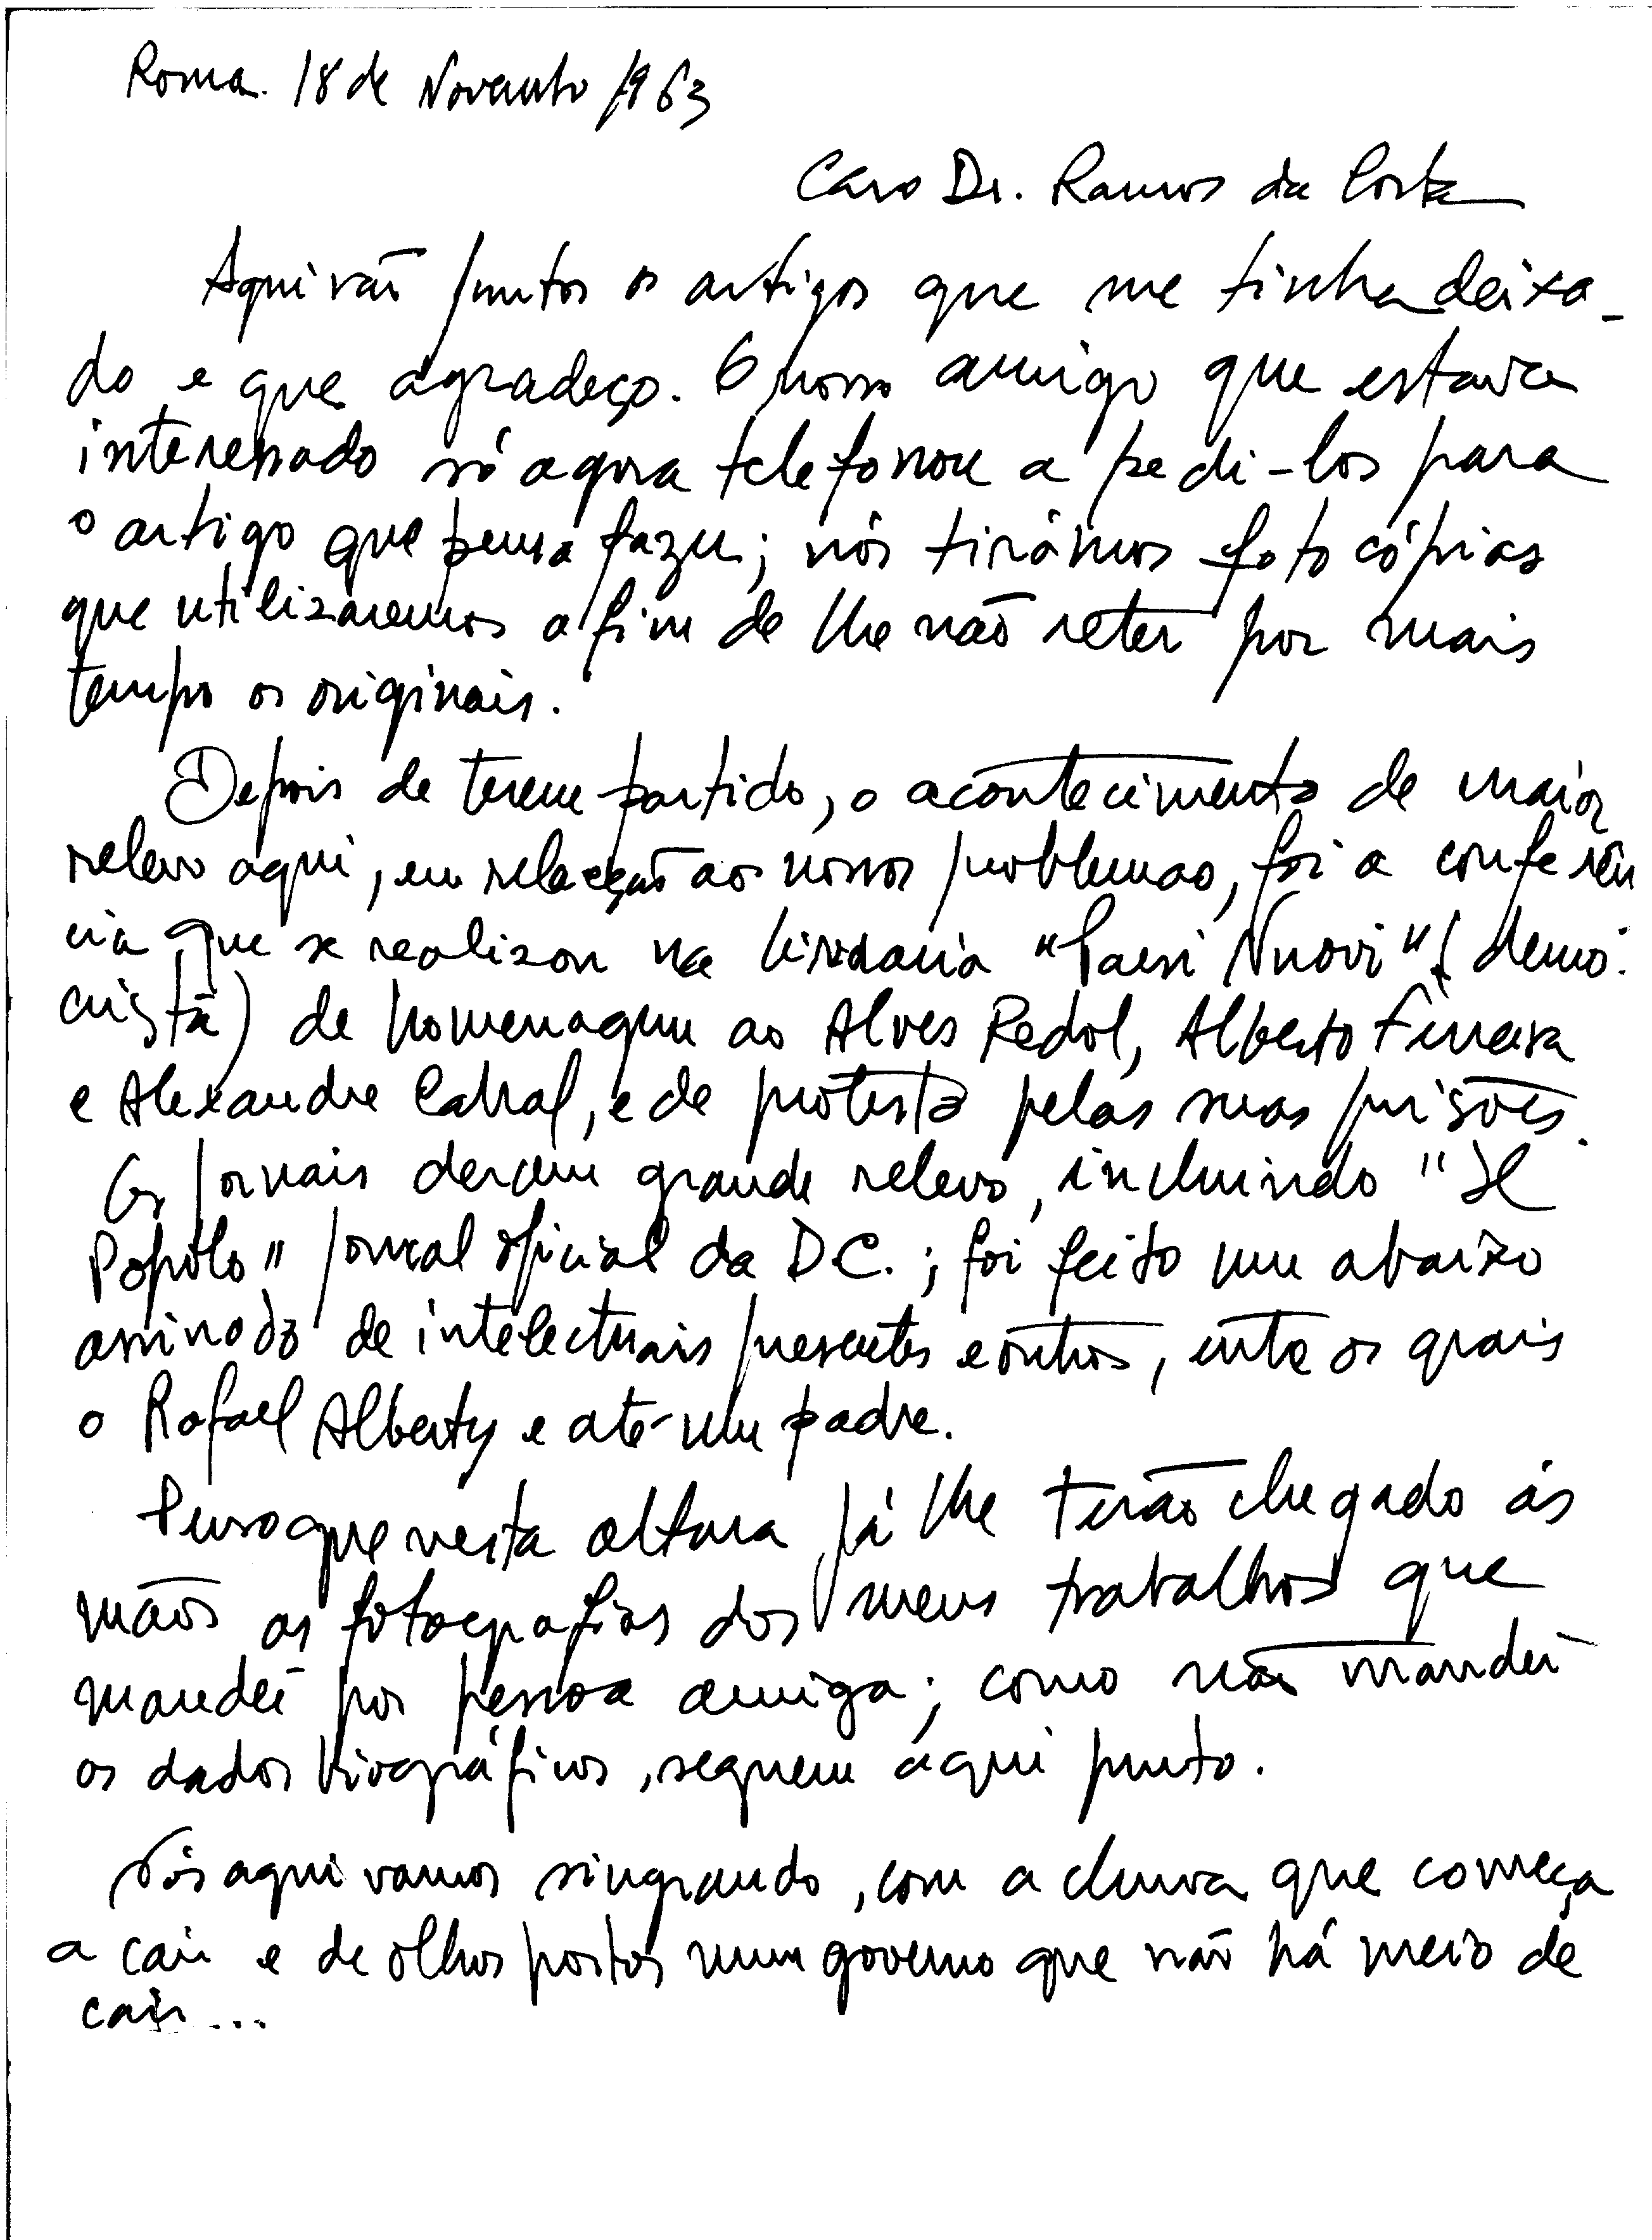 Roma. 18 de Novembro 1963
Caro Dr. Ramos da Costa
Aqui vão juntos os artigos que me tinha deixa-
do e que agradeço. O nosso amigo que estava
interessado só agora telefonou a pedi-los para
o artigo que pensa fazer; nós tirámos fotocópias
que utilizaremos afim de lhe não reter por mais
tempo os originais.
Depois de terem partido, o acontecimento de maior
relevo aqui, em relacção aos nossos problemas, foi a conferên
cia que se realizou na livraria "Paesi Nuovi" (demo.
cristã) de homenagem ao Alves Redol, Alberto Ferreira
e Alexandre Cabral, e de protesto pelas suas prisões.
Os jornais deram grande relevo, incluindo "Il
Popolo" jornal oficial da D.C.; foi feito um abaixo
assinado de intelectuais presentes e outros, entre os quais
o Rafael Alberty e até um padre.
Penso que nesta altura já lhe terão chegado ás
mãos as fotografias dos meus trabalhos que
mandei por pessoa amiga; como não mandei
os dados biográficos, seguem aqui junto.
Nós aqui vamos singrando, com a chuva que começa
a cair e de olhos postos num governo que não há meio de
cair...